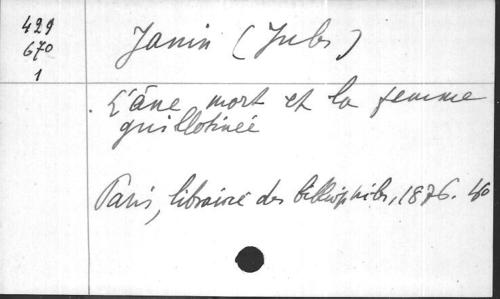 429
670
1
Janin (Jules)
L'âne mort et la femme
guillotinée
Paris, librairie des bibliophiles, 1876. 40